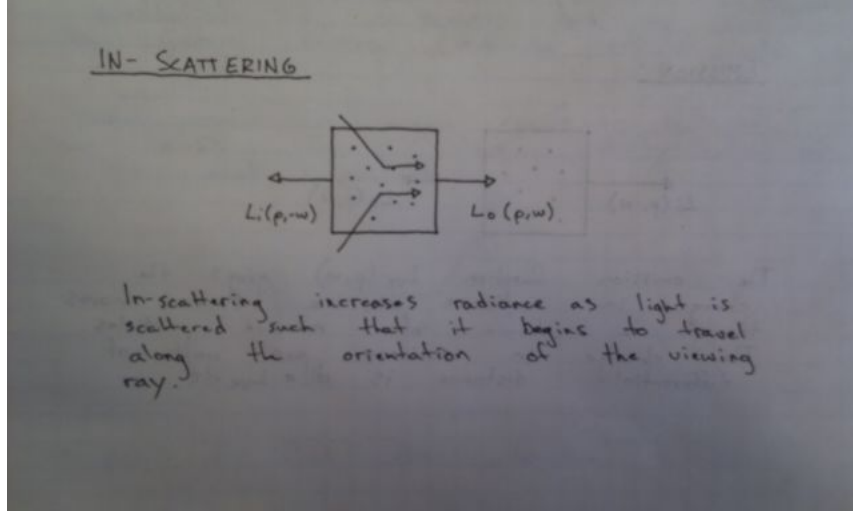 IN- SCATTERING
Li(p,-w)
Lo(p,w)
In-scattering increases radiance as light is
scattered such that it begins to travel
along the orientation of the viewing
ray.